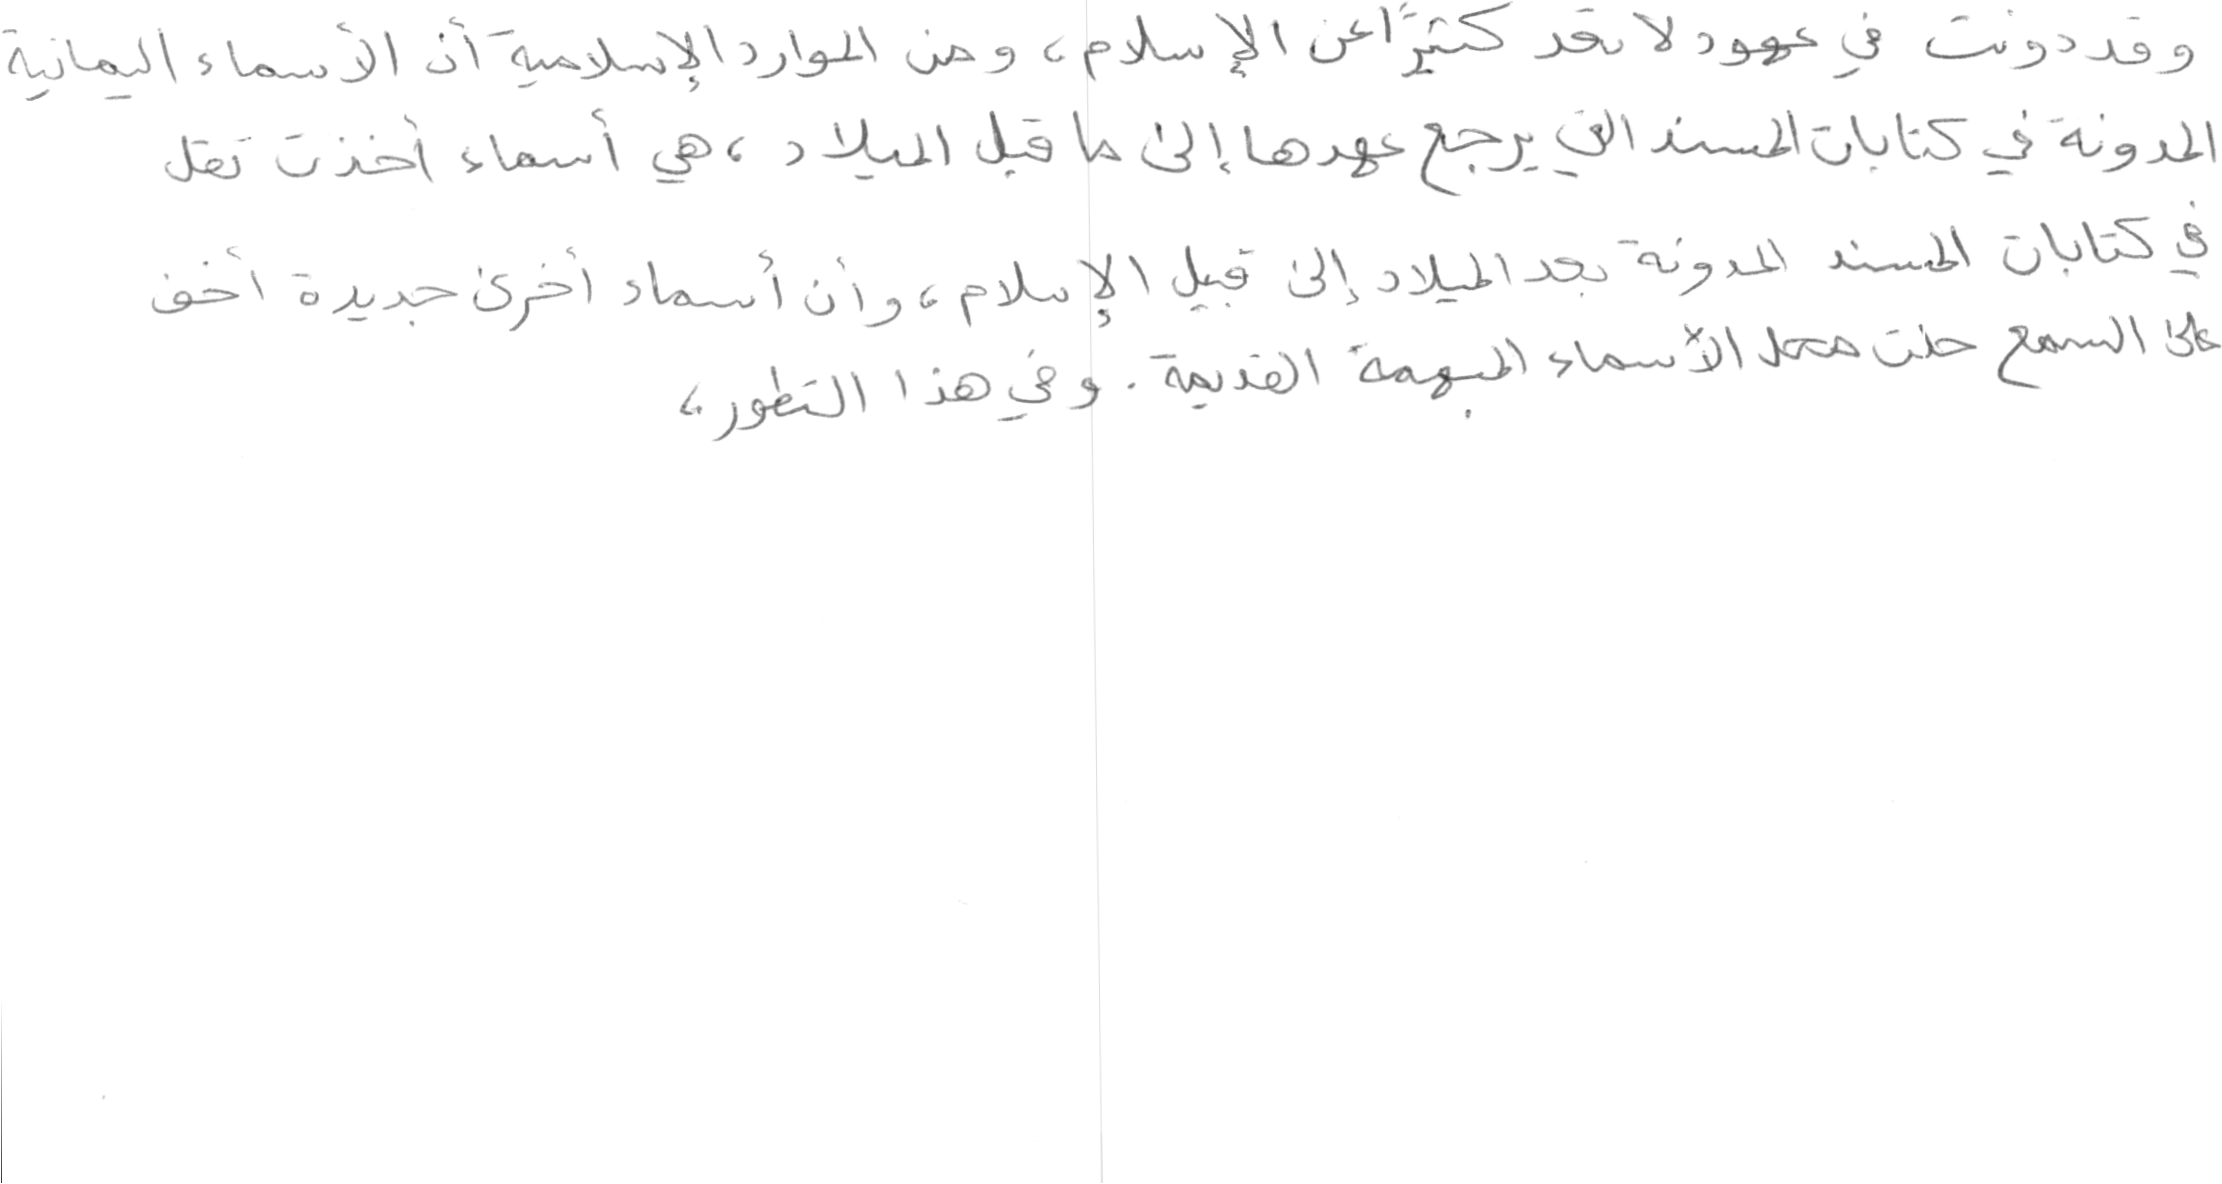 وقد دونت في عهود لا تعد كثيرًا عن الإسلام، ومن الموارد الإسلامية أن الأسماء اليمانية
المدونة في كتابات المسند التي يرجع عهدها إلى ما قبل الميلاد، هي أسماء أخذت تقل
في كتابات المسند المدونة بعد الميلاد إلى قبيل الإسلام، وأن أسماء أخرى جديدة أخف
على السمع حلت محل الأسماء المبهمة القديمة. وفي هذا التطور،